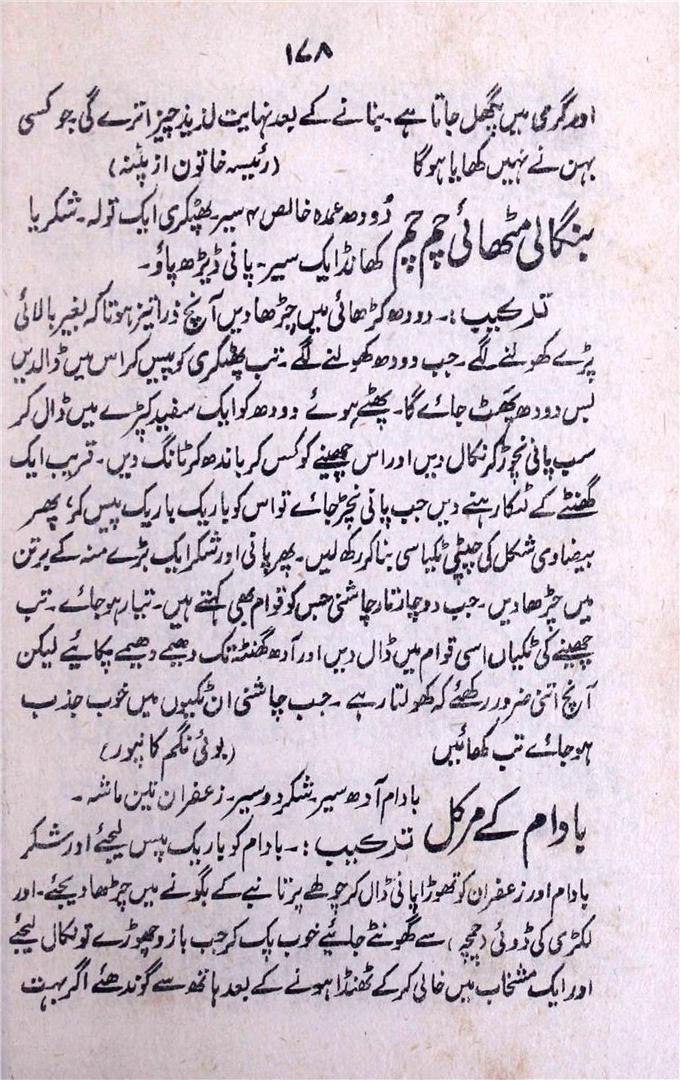 ۱۷۸
اور گرمی میں پگھل جاتا ہے۔ بنانے کے بعد نہایت لذیذ چیز اترے گی جو کسی
بہن نے نہیں کھایا ہوگا (رئیسہ خاتون از پٹنہ)
بنگالی مٹھائی چم چم
دُودھ عمدہ خالص ۴ سیر۔ پھٹکری ایک تولہ۔ شکر یا
کھانڈ ایک سیر۔ پانی ڈیڑھ پاؤ۔
ترکیب :۔ دودھ کڑھائی میں چڑھا دیں آنچ ذرا تیز ہو تاکہ بغیر بالائی
پڑے کھولنے لگے۔ جب دودھ کھولنے لگے۔ تب پھٹکری کو پیس کر اس میں ڈالدیں
بس دودھ پھَٹ جائے گا۔ پھٹے ہوئے دودھ کو ایک سفید کپڑے میں ڈال کر
سب پانی نچوڑ کر نکال دیں اور اس چھینے کو کس کر باندھ کر ٹانگ دیں۔ قریب ایک
گھنٹے کے ٹنکا رہنے دیں جب پانی نچڑ جائے تو اس کو باریک باریک پیس کر، پھر
بیضاوی شکل کی چپٹی ٹکیا سی بنا کر رکھ لیں۔ پھر پانی اور شکر ایک بڑے منہ کے برتن
میں چڑھا دیں۔ جب دو چار تار چاشنی جس کو قوام بھی کہتے ہیں۔ تیار ہو جائے۔ تب
چھینے کی ٹکیاں اسی قوام میں ڈال دیں اور آدھ گھنٹہ تک دھیمے دھیمے پکائیے لیکن
آنچ اتنی ضرور رکھئے کہ کھولتا رہے۔ جب چاشنی ان ٹکیوں میں خوب جذب
ہو جائے تب کھائیں (بوئی نگم کانپور)
بادام کے مرکل
بادام آدھ سیر۔ شکر دو سیر۔ زعفران تین ماشہ۔
ترکیب :۔ بادام کو باریک پیس لیجئے اور شکر
بادام اور زعفران کو تھوڑا پانی ڈال کر چولھے پر تانبے کے بگونے میں چڑھا دیجئے۔ اور
لکڑی کی ڈوئی (چمچہ) سے گھونٹے جائیے خوب پک کر جب بازو چھوڑے تو نکال لیجئے
اور ایک مشخاب میں خالی کر کے ٹھنڈا ہونے کے بعد ہاتھ سے گوندھئے اگر بہت